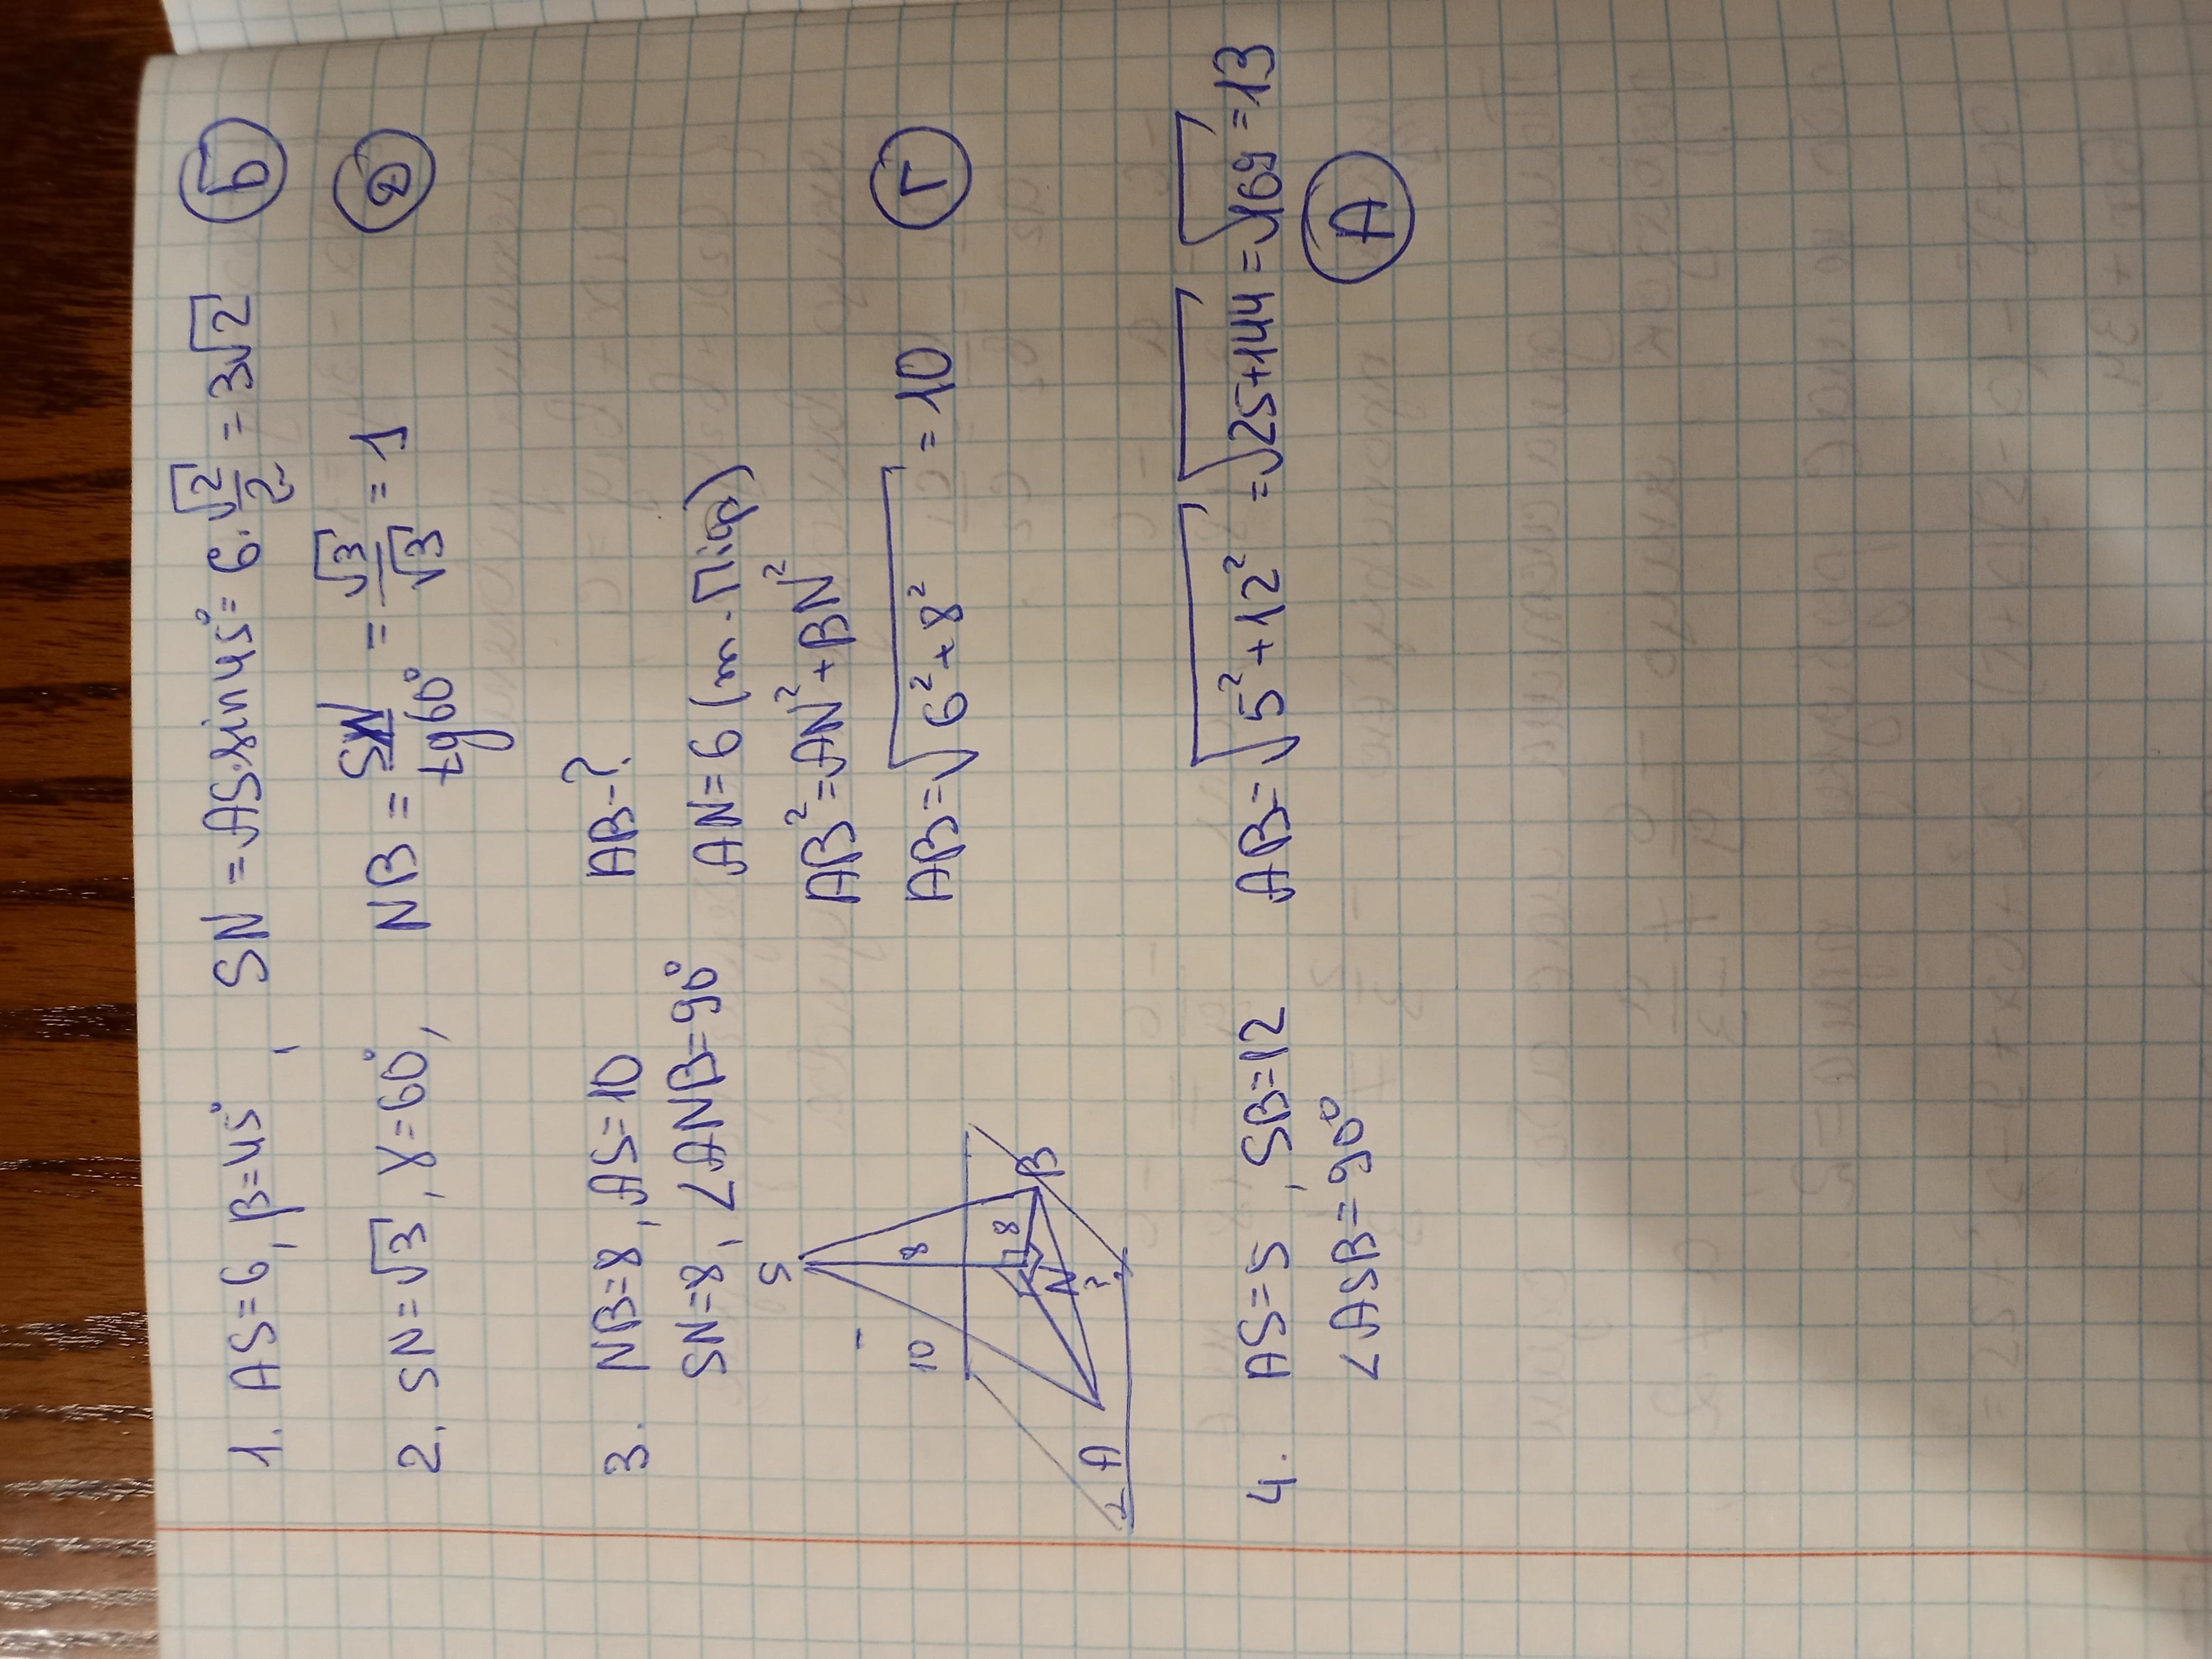 1. AS=6, β=45°, SN=AS·sin45°=6·√2/2=3√2 Б
2. SN=√3, γ=60°, NB=SN/tg60°=√3/√3=1 Д
3. NB=8, AS=10 AB-?
SN=8, ∠ANB=90° AN=6 (т. Піф)
AB²=AN²+BN²
AB=√6²+8² =10 Г
S
10
8
8
N
B
?
A
4. AS=5, SB=12 AB=√5²+12² =√25+144=√169=13
∠ASB=90° А